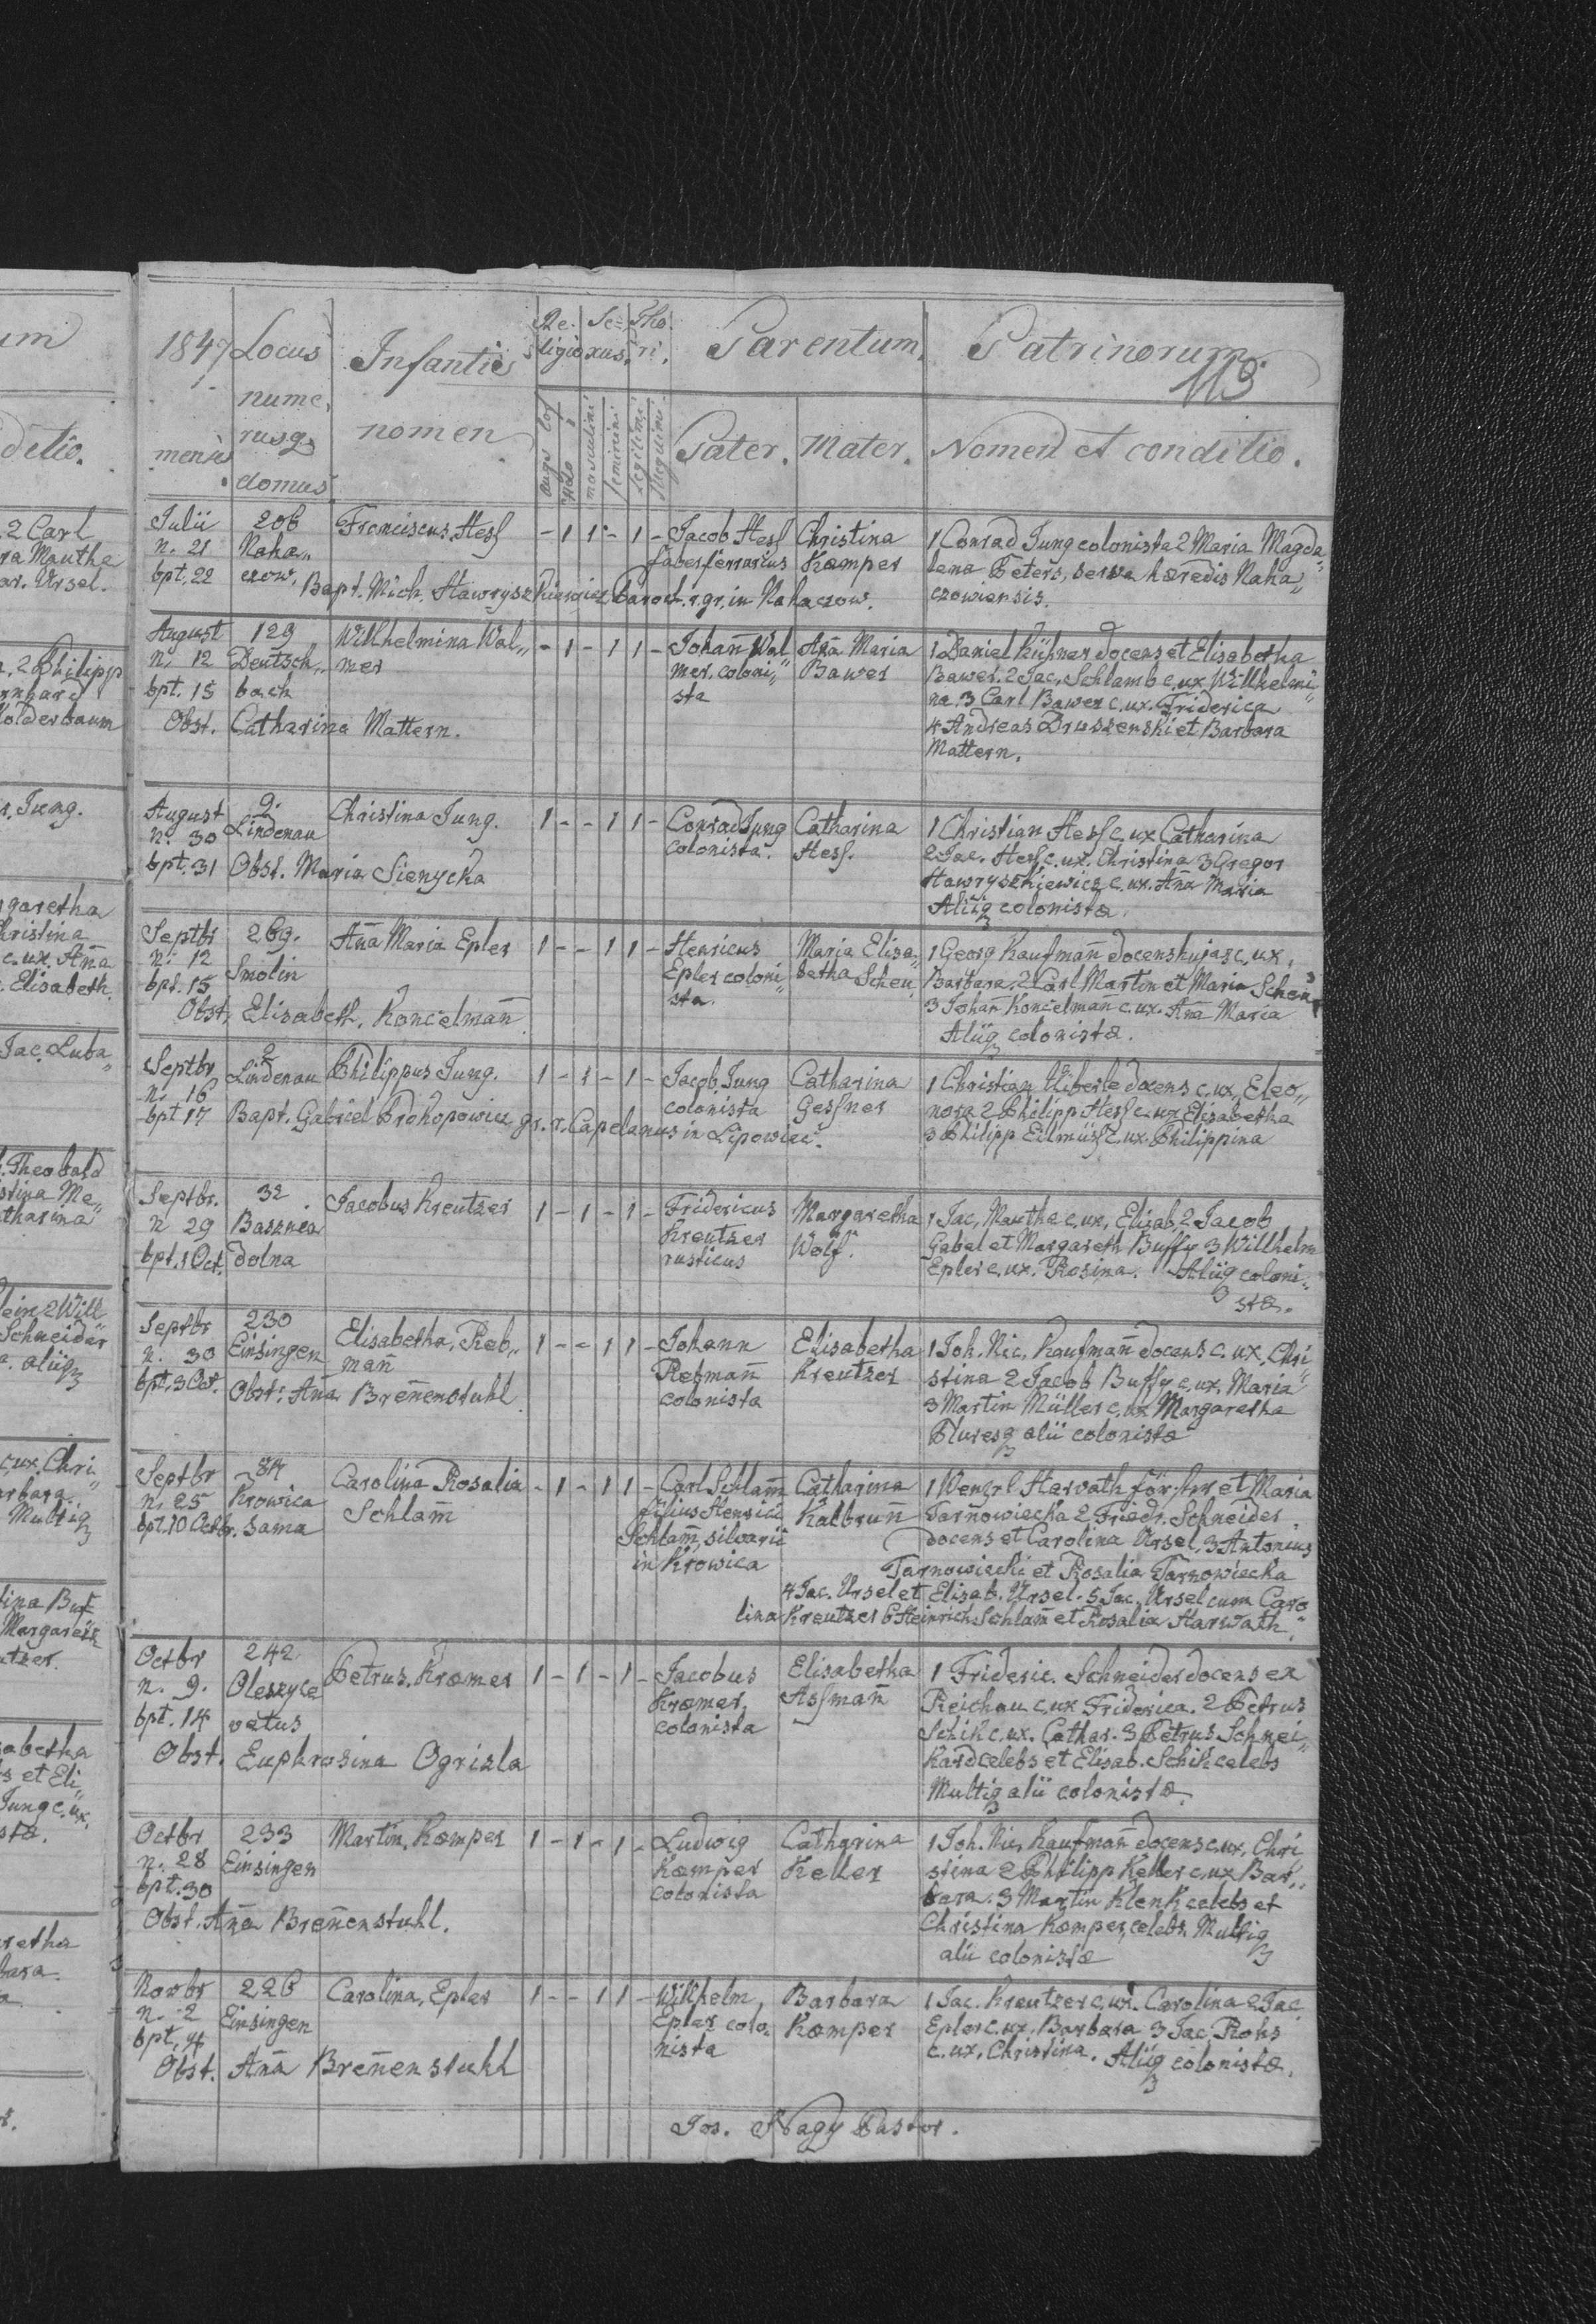 1847 Locus Infantis Religio Sexus Thori Parentum Patrinorum
113
mensis numerusq domus nomen Pater. Mater. Nomen et conditio.
masculini feminini legitimi illegitimi
Julii 206 Franciscus Hess - 1 1 - 1 - Jacob Hess Christina 1 Conrad Jung colonista 2 Maria Magda„
n. 21 Naha„ faber ferrarius Kæmper lena Peters, serva hæredis Naha„
bpt. 22 czow. Bapt. Mich. Hawryszkiewicz Paroch. r. gr. in Nahaczow. czowiensis.
August 129 Willhelmina Wal„ - 1 - 1 1 - Johañ Wal Aña Maria 1 Daniel Kühner docens et Elisabetha
n. 12 Deutsch„ mer mer, coloni„ Bawer Bawer. 2 Jac. Schlamb c. ux Willhelmi„
bpt. 15 bach sta na 3 Carl Bawer c. ux. Friderica
Obst. Catharina Mattern. 4 Andreas Druszenski et Barbara
Mattern.
August 9. Christina Jung. 1 - - 1 1 - Conrad Jung Catharina 1 Christian Hess c. ux Catharina
n. 30 Lindenau colonista. Hess. 2 Jac. Hess c. ux. Christina 3 Gregor
bpt. 31 Obst. Maria Sienycka Hawryszkiewicz c. ux. Aña Maria
Aliiq colonistæ.
Septbr 269. Aña Maria Epler 1 - - 1 1 - Henricus Maria Elisa„ 1 Georg Kaufmañ docens hujas c. ux.
n. 12 Smolin Epler coloni betha Scheu Barbara. 2 Carl Martin et Maria Scheu
bpt. 15 sta. 3 Johañ Koncelmañ c. ux. Aña Maria
Obst. Elisabeth. Koncelmañ Aliiq colonistæ.
Septbr 2 Philippus Jung. 1 - 1 - 1 - Jacob Jung Catharina 1 Christian Überle docens c. ux. Eleo„
n. 16 Lindenau colonista Gessner nora 2 Philipp Hess c. ux Elisabetha
bpt 17 Bapt. Gabriel Prohopowicz gr. r. Capelanus in Lipowiec. 3 Philipp Eilmüss c. ux. Philippina
Septbr. 32 Jacobus Kreutzer 1 - 1 - 1 - Fridericus Margaretha 1 Jac. Mauthe c. ux. Elisab. 2 Jacob
n 29 Basznia Kreutzer Wolf. Gabel et Margareth Buffy 3 Willhelm
bpt. 1 Oct. dolna rusticus Epler c. ux. Rosina. Aliiq coloni„
stæ.
Septbr 230 Elisabetha, Reb„ 1 - - 1 1 - Johann Elisabetha 1 Joh. Nic. Kaufmañ docens c. ux. Chri„
n. 30 Einsingen mañ Rebmañ Kreutzer stina 2 Jacob Buffy c. ux. Maria
bpt. 3 Oct. Obst: Aña Breñenstuhl colonista 3 Martin Müller c. ux Margaretha
Pluresq alii colonistæ
Septbr 84 Carolina Rosalia - 1 - 1 1 - Carl Schlam̃ Catharina 1 Wenzel Harvath förster et Maria
n. 25 Krowica Schlam̃ filius Henrici Kalbruñ Tarnowiecka 2 Friedr. Schneider
bpt. 10 Octbr. sama Schlam̃, silvarii docens et Carolina Ursel, 3 Antonius
in Krowica Tarnowiecki et Rosalia Tarnowiecka
4 Jac. Ursel et Elisab. Ursel. 5 Jac. Ursel cum Caro
lina Kreutzer 6 Heinrich Schlam̃ et Rosalia Harwath.
Octbr 242 Petrus, Kræmer 1 - 1 - 1 - Jacobus Elisabetha 1 Frideric. Schneider docens ex
n. 9. Oleszyce Kræmer, Assmañ Reichau c. ux Friderica. 2 Petrus
bpt. 14 vetus colonista Schik c. ux. Cathar. 3 Petrus Schnei„
Obst. Euphrosina Ogrisla kard celebs et Elisab. Schik celebs
Multiq alii colonistæ.
Octbr 233 Martin, Kæmper 1 - 1 - 1 - Ludwig Catharina 1 Joh. Nic. Kaufmañ docens c. ux. Chri
n. 28 Einsingen Kæmper Keller stina 2 Philipp Keller c. ux Bar„
bpt. 30 colonista bara. 3 Martin Klenk celebs et
Obst. Aña Breñenstuhl. Christina Kæmper, celebs. Multiq
alii colonistæ
Novbr 226 Carolina, Epler 1 - - 1 1 - Wilhelm, Barbara 1 Jac. Kreutzer c. ux. Carolina 2 Jac.
n. 2 Einsingen Epler colo„ Kæmper Epler c. ux. Barbara 3 Jac. Rohs
bpt. 4 nista c. ux. Christina. Aliiq colonistæ.
Obst. Aña Breñenstuhl
Jos. Nagy Pastor.